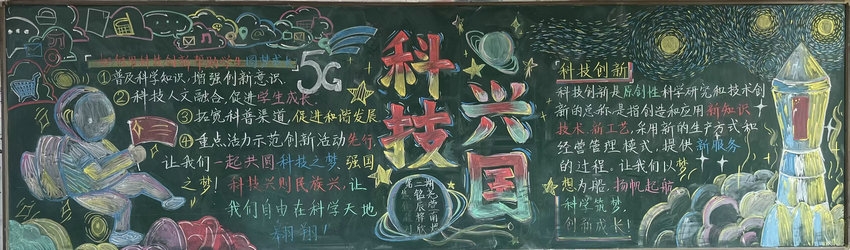 ①普及科学知识,增强创新意识
②科技人文融合,促进学生成长.
③拓宽科普渠道,促进和谐发展
④重点活力示范创新活动先行,
让我们一起共圆科技之梦,强国
之梦!科技兴则民族兴,让
我们自由在科学天地
翱翔!
5G
科技
兴国
「科技创新」
科技创新是原创性科学研究和技术创
新的总称,是指创造和应用新知识
技术、新工艺,采用新的生产方式和
经营管理模式,提供新服务
的过程。让我们以梦
想为船,扬帆起航
科学筑梦,
创新成长!